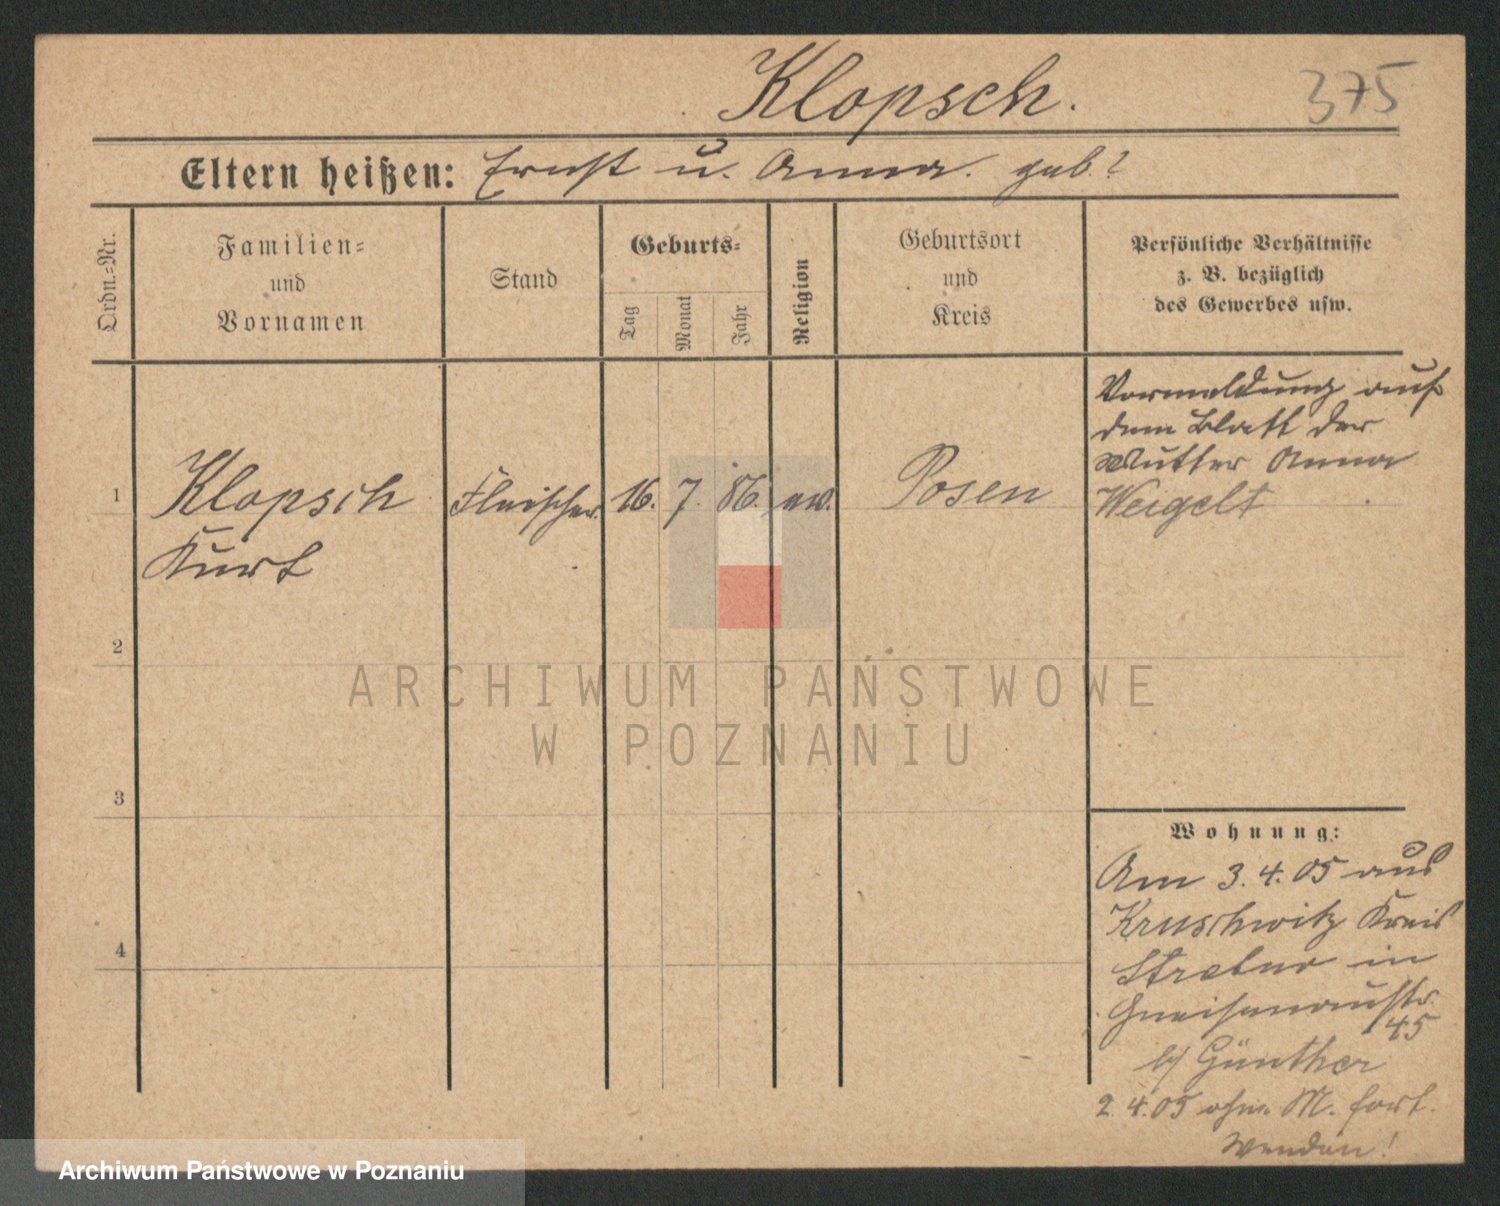 Klopsch.
375
Eltern heißen: Ernst u. Anna. geb.?
Ordn.-Nr.
Familien-
und
Vornamen
Stand
Geburts-
Tag
Monat
Jahr
Religion
Geburtsort
und
Kreis
Persönliche Verhältnisse
z. B. bezüglich
des Gewerbes usw.
1
Klopsch
Kurt
Fleischer.
16.
7.
86.
ev.
Posen
Vormeldung auf
dem Blatt der
Mutter Anna
Weigelt
2
3
4
Wohnung:
Am 3.4.05 aus
Kruschwitz Kreis
Strelno in
Gneisenaustr.
45
b/ Günther
2.4.05 ohne M. fort.
Wenden!
ARCHIWUM PAŃSTWOWE
W POZNANIU
Archiwum Państwowe w Poznaniu